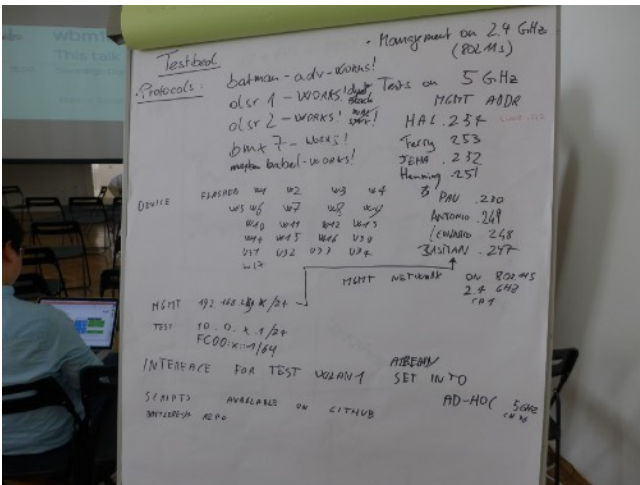 wbm
This talk
Testbed
· Management on 2.4 GHz
(802.11s)
· Protocols:
batman-adv-works!
olsr 1 - WORKS!
olsr 2 - WORKS!
bmx 7 - works!
babel-works!
Tests on 5 GHz
MGMT ADDR
HAL .254
Ferry 253
JEHA .252
Henning .251
PAU .230
ANTONIO .249
LEONARDO 248
BASTIAN .247
DEVICE FLASHED W1 W2 W3 W4
W5 W6 W7 W8 W9
W10 W11 W12 W13
W14 W15 W16 V30
V31 V32 V33 V34
W17
MGMT NETWORK ON 802.11S
2.4 GHZ
CH1
MGMT 192.168. X /24
TEST 10.0.X.1/24
FC00:X::1/64
INTERFACE FOR TEST WLAN1 ALREADY
SET INTO
AD-HOC 5GHZ
SCRIPTS AVAILABLE ON GITHUB
BATTLEMESH REPO